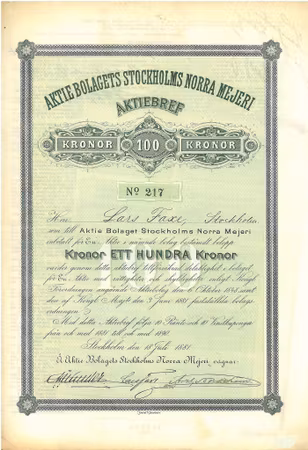 AKTIE BOLAGETS STOCKHOLMS NORRA MEJERI
AKTIEBREF
KRONOR 100 KRONOR
No 217
Herr Lars Faxe, Stockholm
som till Aktie Bolaget Stockholms Norra Mejeri
inbetalt för En Aktie i nämnde bolag bestämdt belopp
Kronor ETT HUNDRA Kronor
varder genom detta aktiebref tillförsäkrad delaktighet i bolaget,
för En Aktie, med rättigheter och skyldigheter enligt Kongl.
Förordningen angående Aktiebolag den 6 Oktober 1848 samt
den af Kongl. Maj:t den 3 Juni 1881 fastställda bolags-
ordningen.
Med detta Aktiebref följa 10 Ränte och 10 Vinstkuponger
från och med 1881 till och med 1890.
Stockholm den 18 Juli 1881.
Å Aktie Bolagets Stockholms Norra Mejeri vägnar: